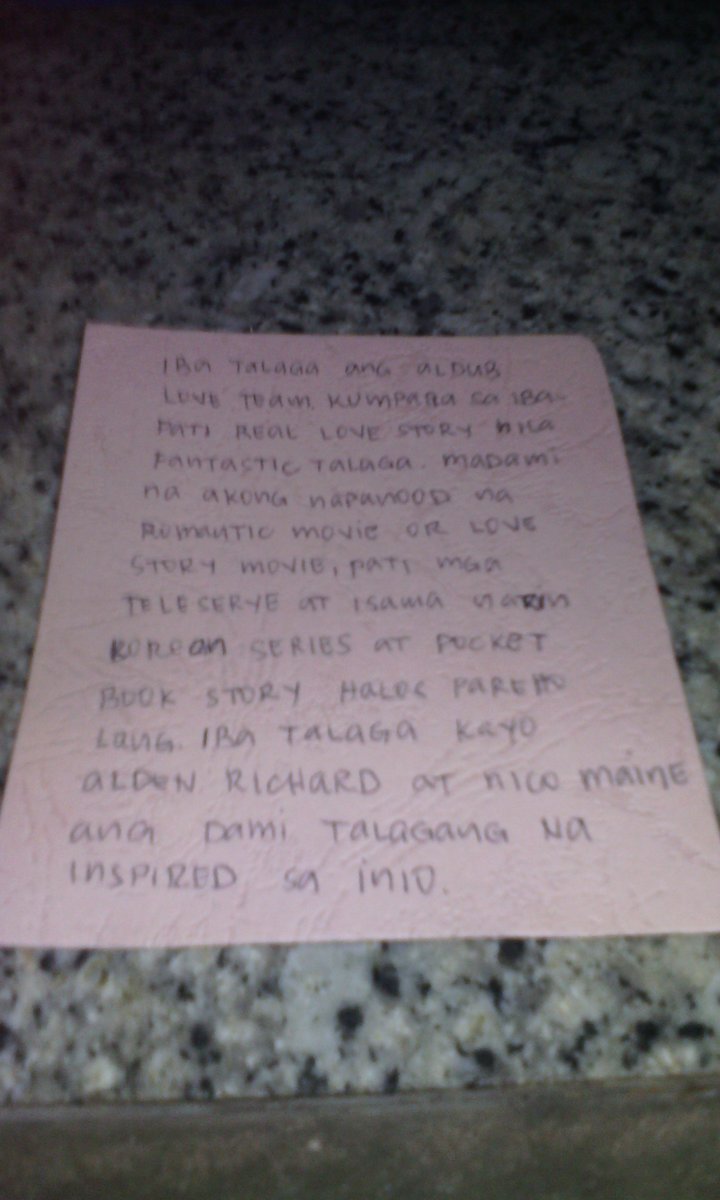 IBA TALAGA ANG ALDUB
LOVE TEAM. KUMPARA SA IBA.
PATI REAL LOVE STORY NILA
FANTASTIC TALAGA. MADAMI
NA AKONG NAPANOOD NA
ROMANTIC MOVIE OR LOVE
STORY MOVIE, PATI MGA
TELESERYE AT ISAMA NARIN
KOREAN SERIES AT POCKET
BOOK STORY HALOS PAREHO
LANG. IBA TALAGA KAYO
ALDEN RICHARD AT NICO MAINE
ANG DAMI TALAGANG NA
INSPIRED SA INIO.